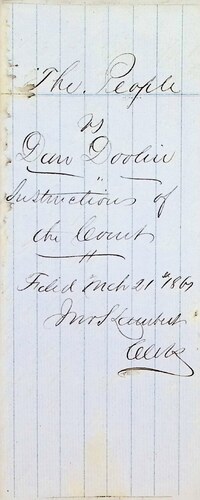 The People
vs
Dan Doolin
"
Instructions of
the Court
Filed Mch 21st 186
Jno S Lambert
Clerk